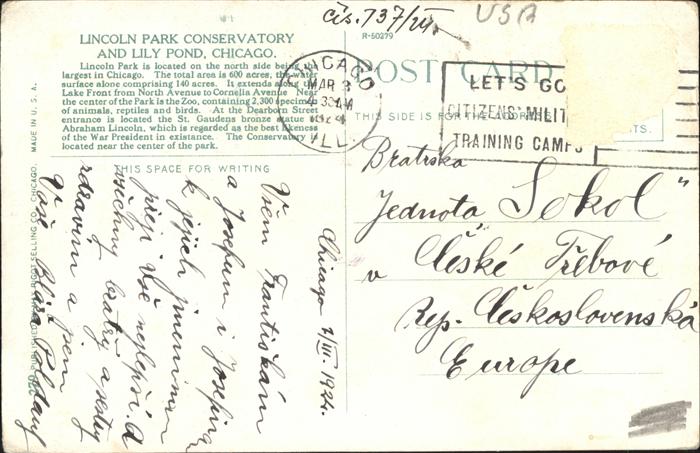 čís. 737/III.
USA
LINCOLN PARK CONSERVATORY
AND LILY POND, CHICAGO.
R-50279
Lincoln Park is located on the north side being the
largest in Chicago. The total area is 600 acres, the water
surface alone comprising 140 acres. It extends along the
Lake Front from North Avenue to Cornelia Avenue Near
the center of the Park is the Zoo, containing 2,300 specimens
of animals, reptiles and birds. At the Dearborn Street
entrance is located the St. Gaudens bronze statue of
Abraham Lincoln, which is regarded as the best likeness
of the War President in existance. The Conservatory is
located near the center of the park.
POST CARD
CHICAGO
MAR 3
AM
1924
ILL.
LET'S GO
CITIZENS' MILIT
TRAINING CAMPS
THIS SIDE IS FOR THE ADDRESS
THIS SPACE FOR WRITING
MADE IN U. S. A.
Chicago 1/III. 1924.
Všem Františkám
a Josefum i Josefinám
k jejich jmeninám
přeji vše nejlepší. A
všechny bratry a sestry
zdravím a jsem
Váš Bláža
Bratrská
Jednota Sokol"
v České Třebové
Rep. Československá
Europe